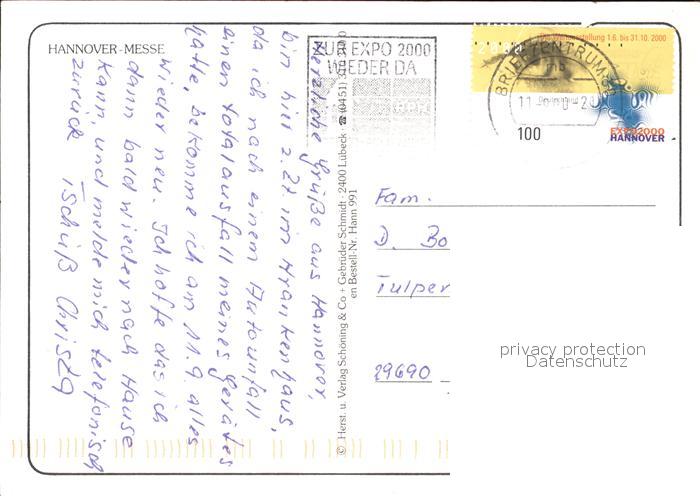 HANNOVER-MESSE
Herzliche Grüße aus Hannover,
bin hier z. Zt im Krankenhaus,
da ich nach einem Autounfall
einen Totalausfall meines Gerätes
hatte, bekomme ich am 11.9. alles
wieder neu. Ich hoffe das ich
dann bald wieder nach Hause
kann, und melde mich telefonisch
zurück Tschüß Christa
© Herst. u. Verlag Schöning & Co + Gebrüder Schmidt · 2400 Lübeck ☎ (0451)
en Bestell-Nr. Hann 991
ZUR EXPO 2000
WIEDER DA
Die Weltausstellung 1.6. bis 31.10. 2000
BRIEFZENTRUM
100
Deutschland
EXPO2000
HANNOVER
Fam.
D. Bo
Tulper
29690
privacy protection
Datenschutz